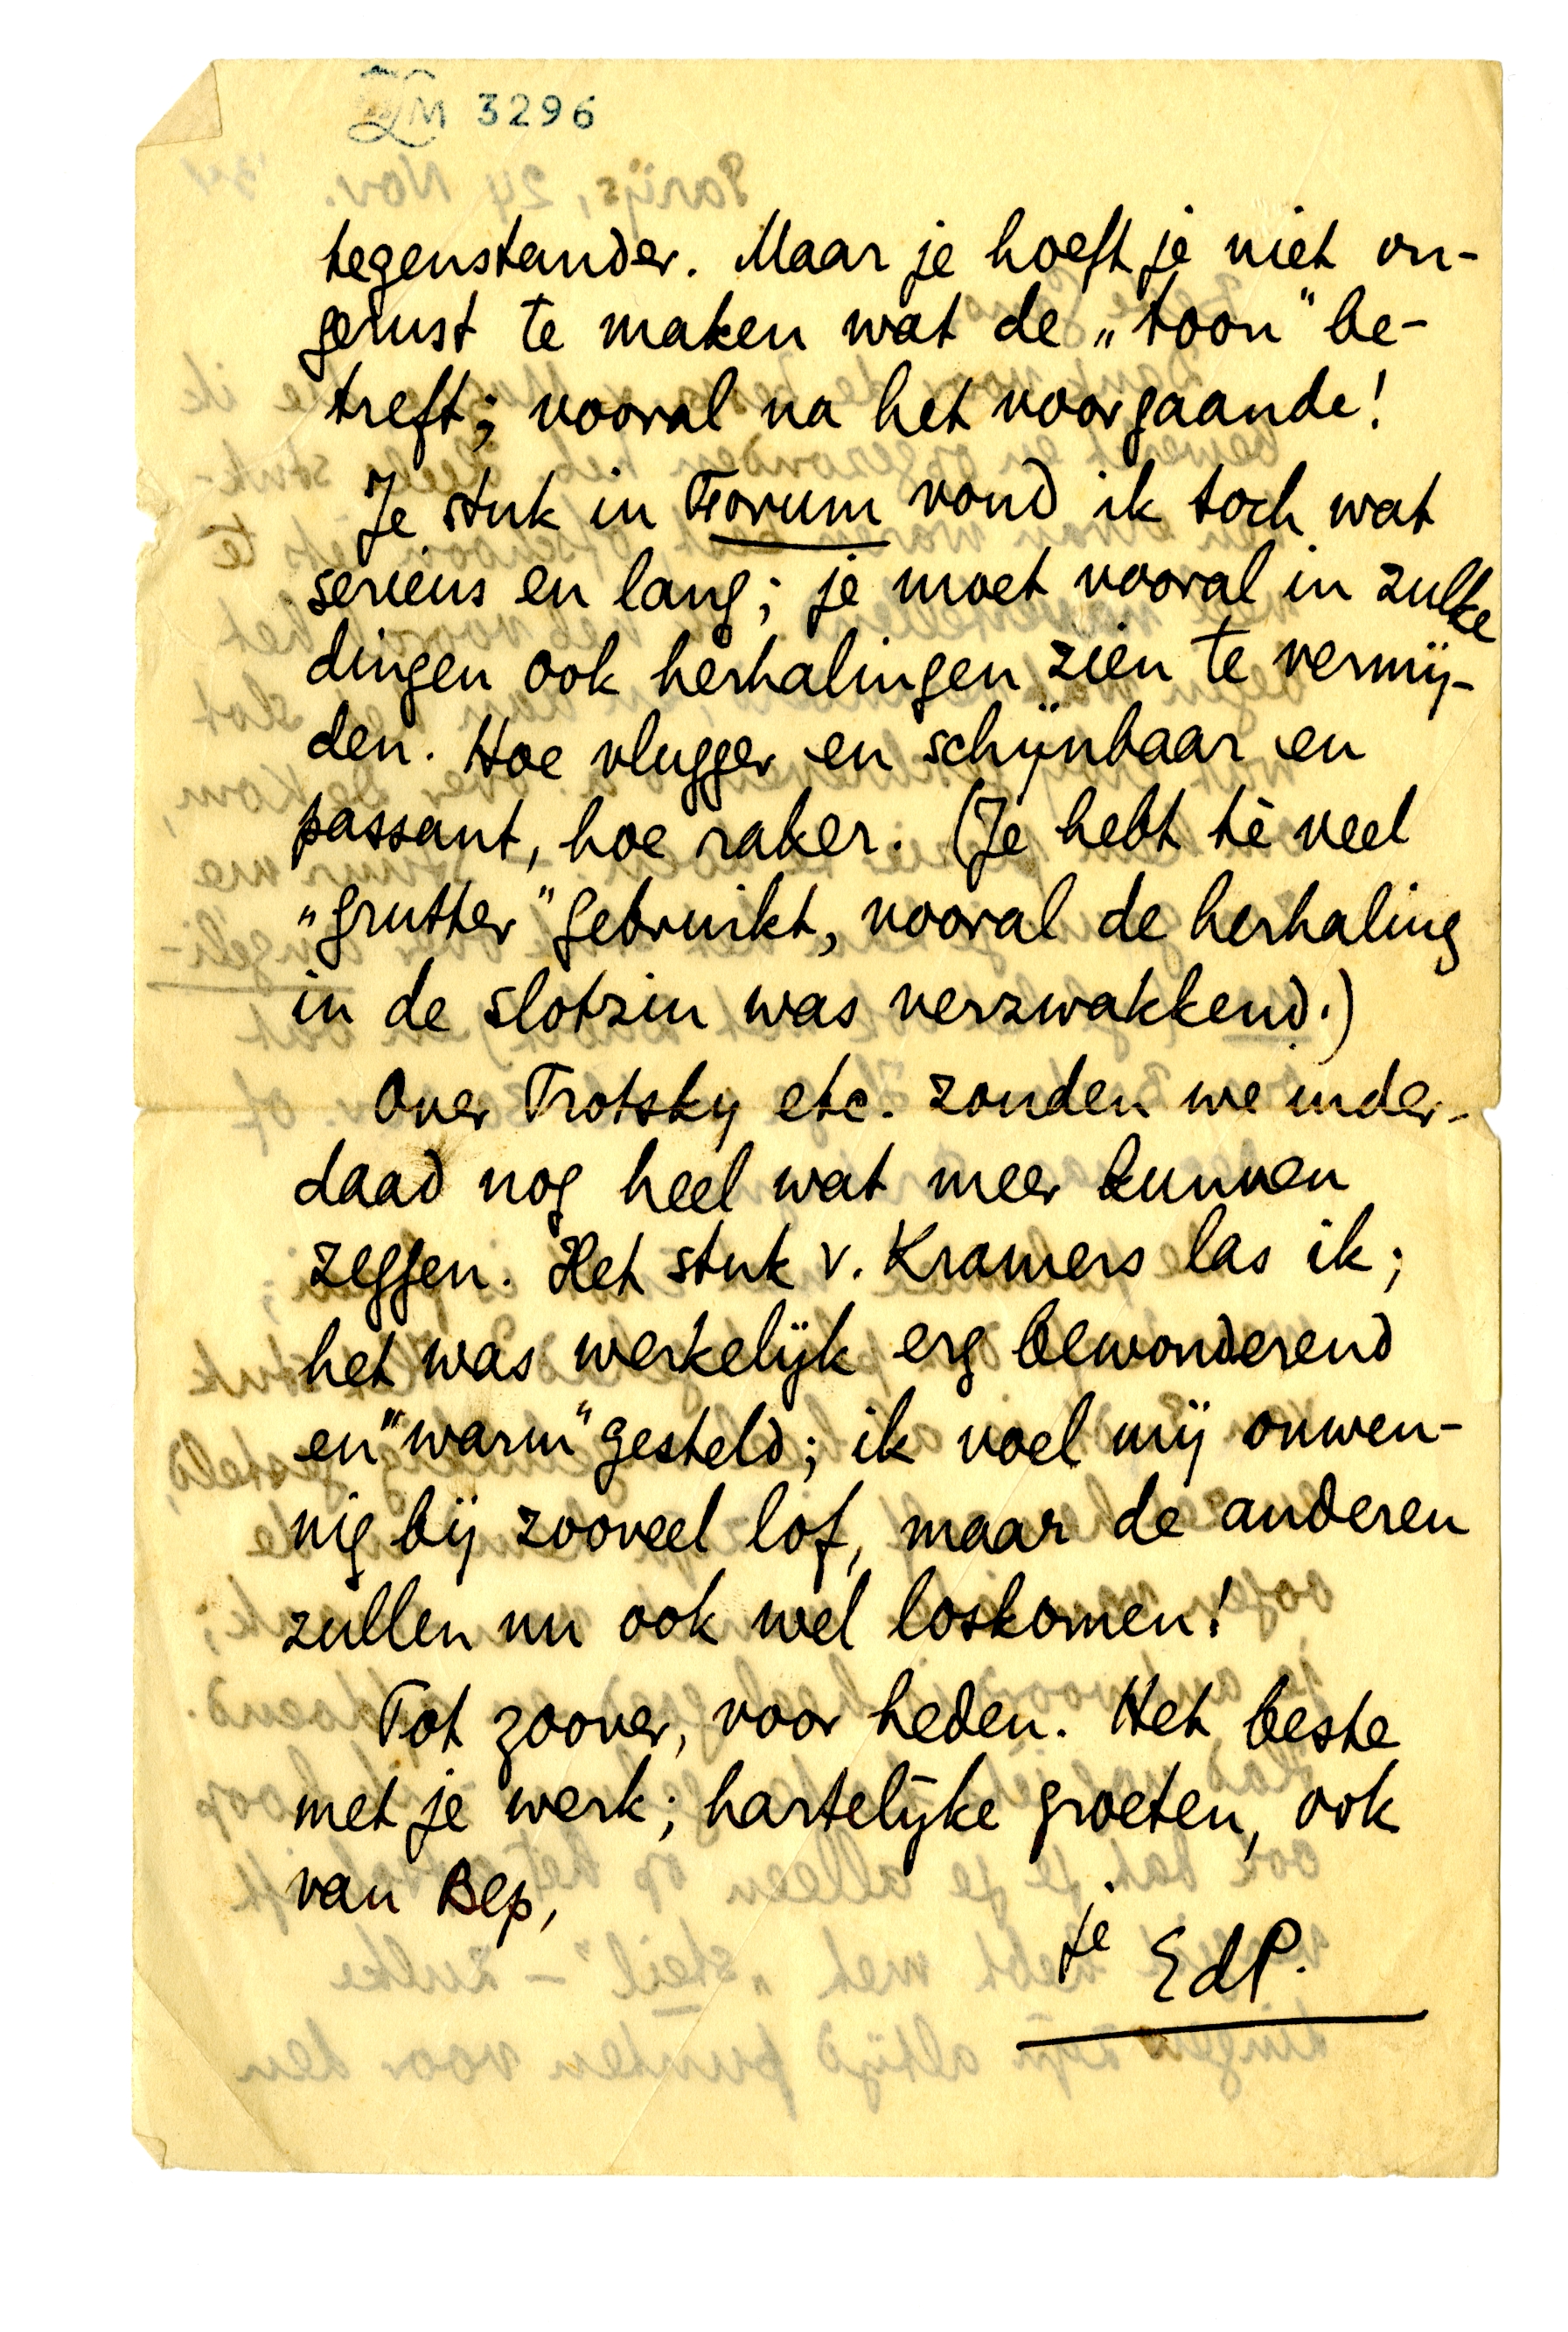 LM 3296
tegenstander. Maar je hoeft je niet on-
gerust te maken wat de „toon" be-
treft; vooral na het voorgaande!
Je stuk in Forum vond ik toch wat
serieus en lang; je moet vooral in zulke
dingen ook herhalingen zien te vermij-
den. Hoe vlugger en schijnbaar en
passant, hoe raker. (Je hebt tè veel
„grutter" gebruikt, vooral de herhaling
in de slotzin was verzwakkend.)
Over Trotsky etc. zouden we inder-
daad nog heel wat meer kunnen
zeggen. Het stuk v. Kramers las ik;
het was werkelijk erg bewonderend
en "warm" gesteld; ik voel mij onwen-
nig bij zooveel lof, maar de anderen
zullen nu ook wel loskomen!
Tot zoover, voor heden. Het beste
met je werk; hartelijke groeten, ook
van Bep,
je
EdP.